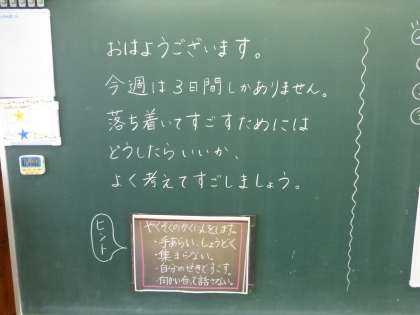 おはようございます。
今週は3日間しかありません。
落ち着いてすごすためには
どうしたらいいか、
よく考えてすごしましょう。
ヒント
やくそくのかくにんをします。
・手あらい、しょうどく
・集まらない。
・自分のせきですごす。
・向かい合って話さない。